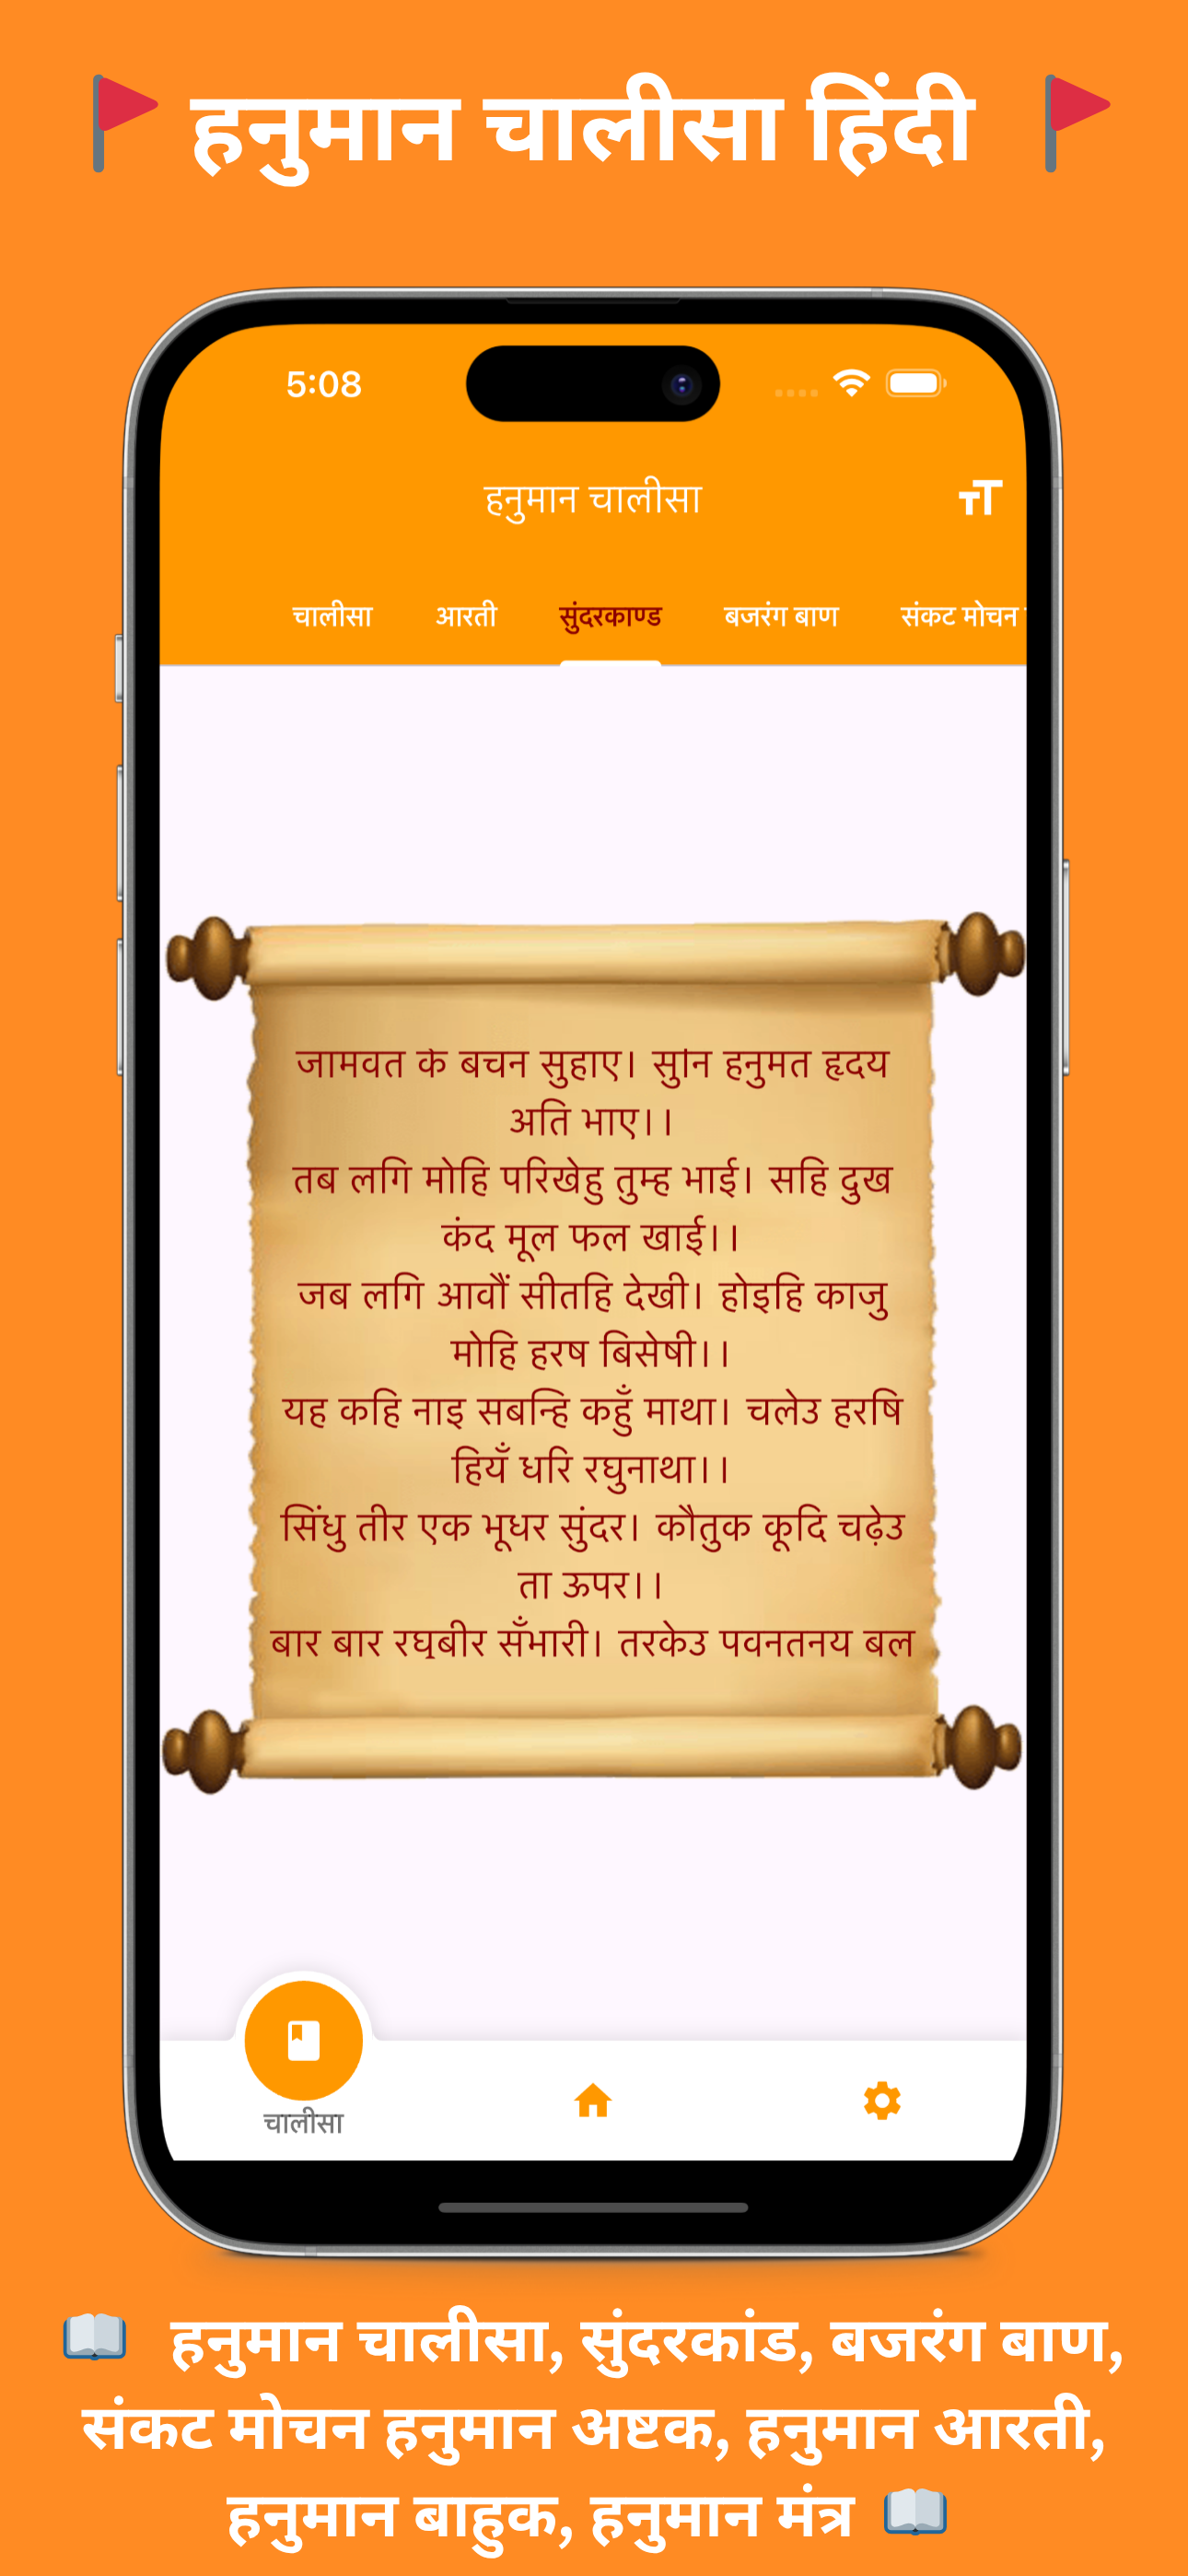 हनुमान चालीसा हिंदी
5:08
हनुमान चालीसा
TT
चालीसा आरती सुंदरकाण्ड बजरंग बाण संकट मोचन
जामवंत के बचन सुहाए। सुनि हनुमंत हृदय
अति भाए।।
तब लगि मोहि परिखेहु तुम्ह भाई। सहि दुख
कंद मूल फल खाई।।
जब लगि आवौं सीतहि देखी। होइहि काजु
मोहि हरष बिसेषी।।
यह कहि नाइ सबन्हि कहुँ माथा। चलेउ हरषि
हियँ धरि रघुनाथा।।
सिंधु तीर एक भूधर सुंदर। कौतुक कूदि चढ़ेउ
ता ऊपर।।
बार बार रघुबीर सँभारी। तरकेउ पवनतनय बल
चालीसा
हनुमान चालीसा, सुंदरकांड, बजरंग बाण,
संकट मोचन हनुमान अष्टक, हनुमान आरती,
हनुमान बाहुक, हनुमान मंत्र